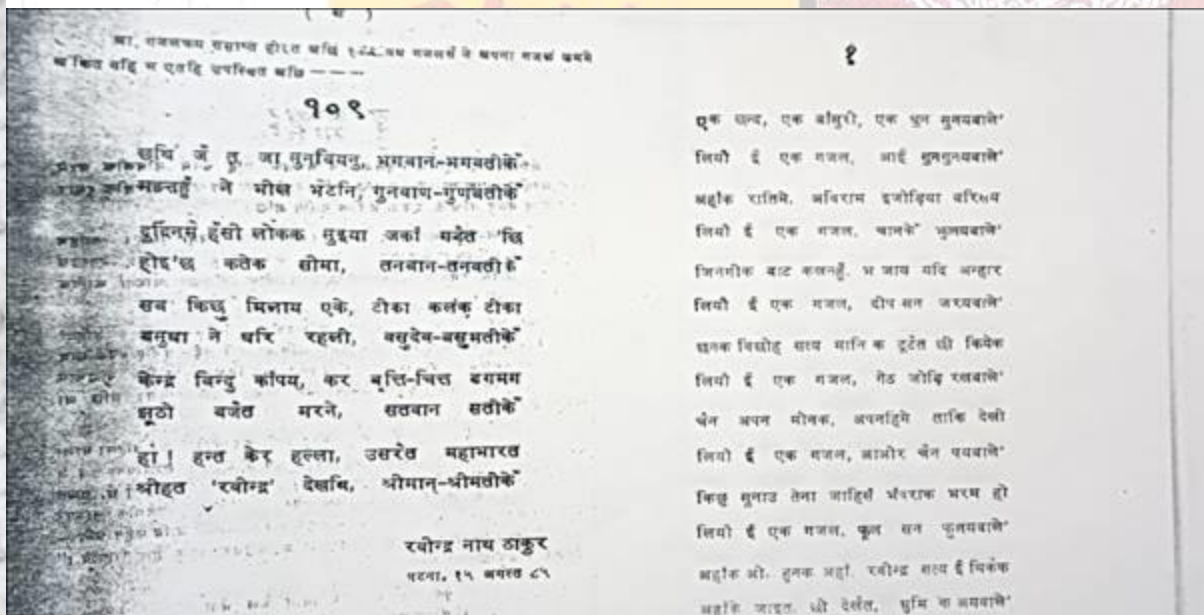 आ, गजलक्रम समाप्त होइत अछि १०८ गजलसँ ने अपना
अछि ———
१०९
छथि जँ तू, जा भगवान-भगवतीकेँ
ने भीख भेटनि, गुनवाण-गुणवतीकेँ
दुर्दिनमे, हँसी लोकक सुइया जकाँ गड़ैत 'छि
होइ'छ कतेक सीमा, तनबान-तनवतीकेँ
सब किछु मिलाय एके, टीका कलंक टीका
बसुधा ने धरि रहली, बसुदेव-बसुमतीकेँ
केन्द्र बिन्दु काँपय, कर बृत्ति-चित्त डगमग
झूठो बजैत मरने, सतवान सतीकेँ
हाँ ! हन्त केर हल्ला, उसरैत महाभारत
श्रीहत 'रवीन्द्र' देखथि, श्रीमान्-श्रीमतीकेँ
रवीन्द्र नाथ ठाकुर
पटना, १५ अगस्त ८५
१
एक छन्द, एक बाँसुरी, एक धुन सुनयबाले'
लियौ ई एक गजल, आई गुनगुनयबाले'
अहाँक रातिमे, अविराम इजोड़िया बरिसय
लियौ ई एक गजल, चानकेँ भुलयबाले'
जिनगीक बाट कखनहुँ, भ जाय यदि अन्हार
लियौ ई एक गजल, दीप सन जरयबाले'
छनक बिछोह सत्य मानि क टूटैत छी कियेक
लियौ ई एक गजल, गेंठ जोड़ि रखबाले'
चैन अपन मोनक, अपनहिमे ताकि देखी
लियौ ई एक गजल, आओर चैन पयबाले'
किछु सुनाउ तेना जाहिसँ भँवराक भरम हो
लियौ ई एक गजल, फूल सन फुलयबाले'
अहाँक ओ, हुनक अहाँ, रवीन्द्र सत्य ई थिकैक
जाइत छी देखैत, घुमि क अयबाले'